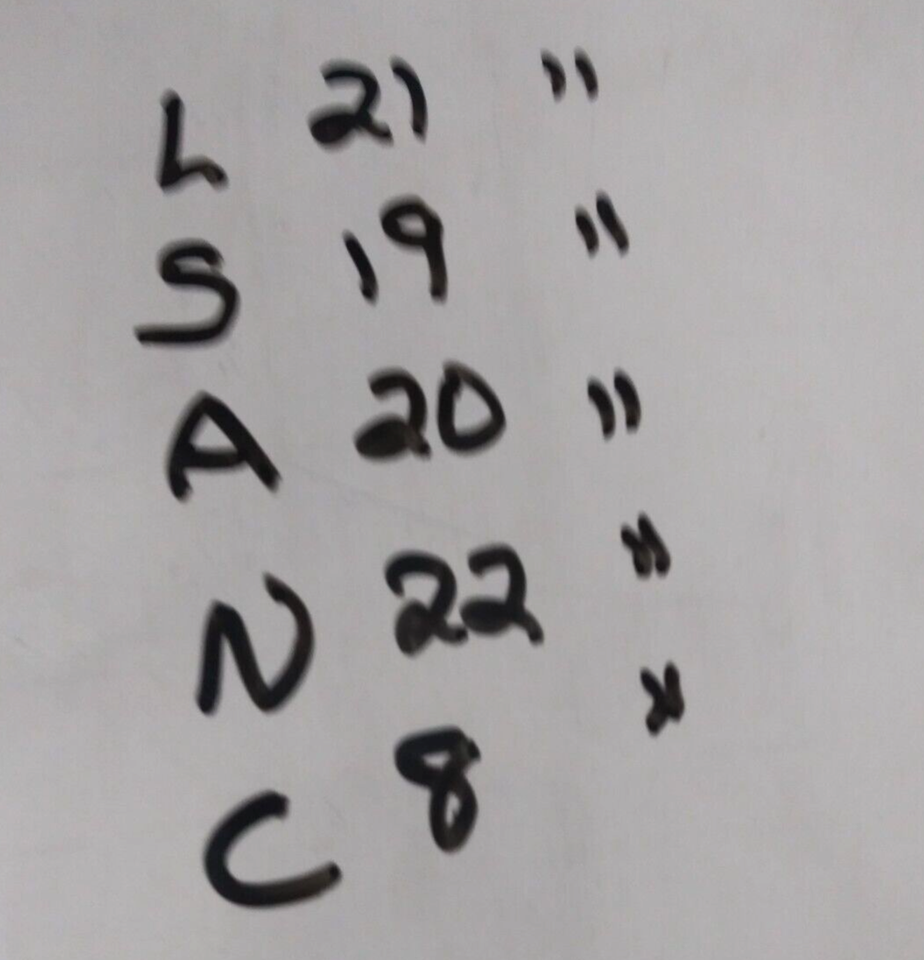 L 21 "
S 19 "
A 20 "
N 22 "
C 8 "